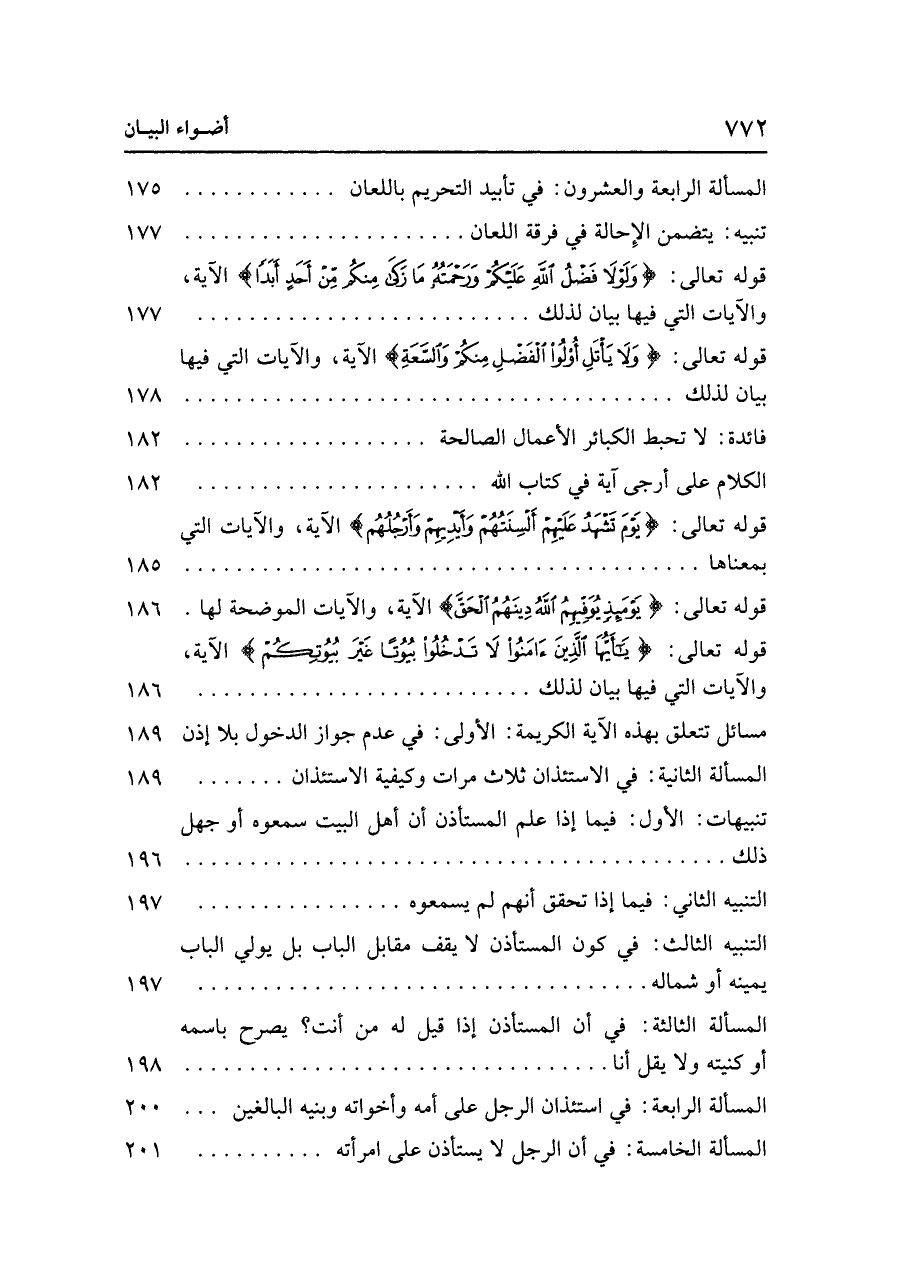 ٧٧٢ أضواء البيان
المسألة الرابعة والعشرون: في تأبيد التحريم باللعان . . . . . . . . . . . . ١٧٥
تنبيه: يتضمن الإحالة في فرقة اللعان . . . . . . . . . . . . . . . . . . . . . . ١٧٧
قوله تعالى: ﴿ وَلَوْلَا فَضْلُ ٱللَّهِ عَلَيْكُمْ وَرَحْمَتُهُۥ مَا زَكَىٰ مِنكُم مِّنْ أَحَدٍ أَبَدًا﴾ الآية،
والآيات التي فيها بيان لذلك . . . . . . . . . . . . . . . . . . . . . . . . . . ١٧٧
قوله تعالى: ﴿ وَلَا يَأْتَلِ أُوْلُواْ ٱلْفَضْلِ مِنكُمْ وَٱلسَّعَةِ﴾ الآية، والآيات التي فيها
بيان لذلك . . . . . . . . . . . . . . . . . . . . . . . . . . . . . . . . . . . . . . ١٧٨
فائدة: لا تحبط الكبائر الأعمال الصالحة . . . . . . . . . . . . . . . . . . . ١٨٢
الكلام على أرجى آية في كتاب الله . . . . . . . . . . . . . . . . . . . . . . ١٨٢
قوله تعالى: ﴿ يَوْمَ تَشْهَدُ عَلَيْهِمْ أَلْسِنَتُهُمْ وَأَيْدِيهِمْ وَأَرْجُلُهُم﴾ الآية، والآيات التي
بمعناها . . . . . . . . . . . . . . . . . . . . . . . . . . . . . . . . . . . . . . . . ١٨٥
قوله تعالى: ﴿ يَوْمَئِذٍ يُوَفِّيهِمُ ٱللَّهُ دِينَهُمُ ٱلْحَقَّ﴾ الآية، والآيات الموضحة لها . ١٨٦
قوله تعالى: ﴿ يَٰٓأَيُّهَا ٱلَّذِينَ ءَامَنُواْ لَا تَدْخُلُواْ بُيُوتًا غَيْرَ بُيُوتِكُمْ ﴾ الآية،
والآيات التي فيها بيان لذلك . . . . . . . . . . . . . . . . . . . . . . . . . . ١٨٦
مسائل تتعلق بهذه الآية الكريمة: الأولى: في عدم جواز الدخول بلا إذن ١٨٩
المسألة الثانية: في الاستئذان ثلاث مرات وكيفية الاستئذان . . . . . . . ١٨٩
تنبيهات: الأول: فيما إذا علم المستأذن أن أهل البيت سمعوه أو جهل
ذلك . . . . . . . . . . . . . . . . . . . . . . . . . . . . . . . . . . . . . . . . . . ١٩٦
التنبيه الثاني: فيما إذا تحقق أنهم لم يسمعوه . . . . . . . . . . . . . . . . ١٩٧
التنبيه الثالث: في كون المستأذن لا يقف مقابل الباب بل يولي الباب
يمينه أو شماله . . . . . . . . . . . . . . . . . . . . . . . . . . . . . . . . . . . ١٩٧
المسألة الثالثة: في أن المستأذن إذا قيل له من أنت؟ يصرح باسمه
أو كنيته ولا يقل أنا . . . . . . . . . . . . . . . . . . . . . . . . . . . . . . . . . ١٩٨
المسألة الرابعة: في استئذان الرجل على أمه وأخواته وبنيه البالغين . . . ٢٠٠
المسألة الخامسة: في أن الرجل لا يستأذن على امرأته . . . . . . . . . . ٢٠١